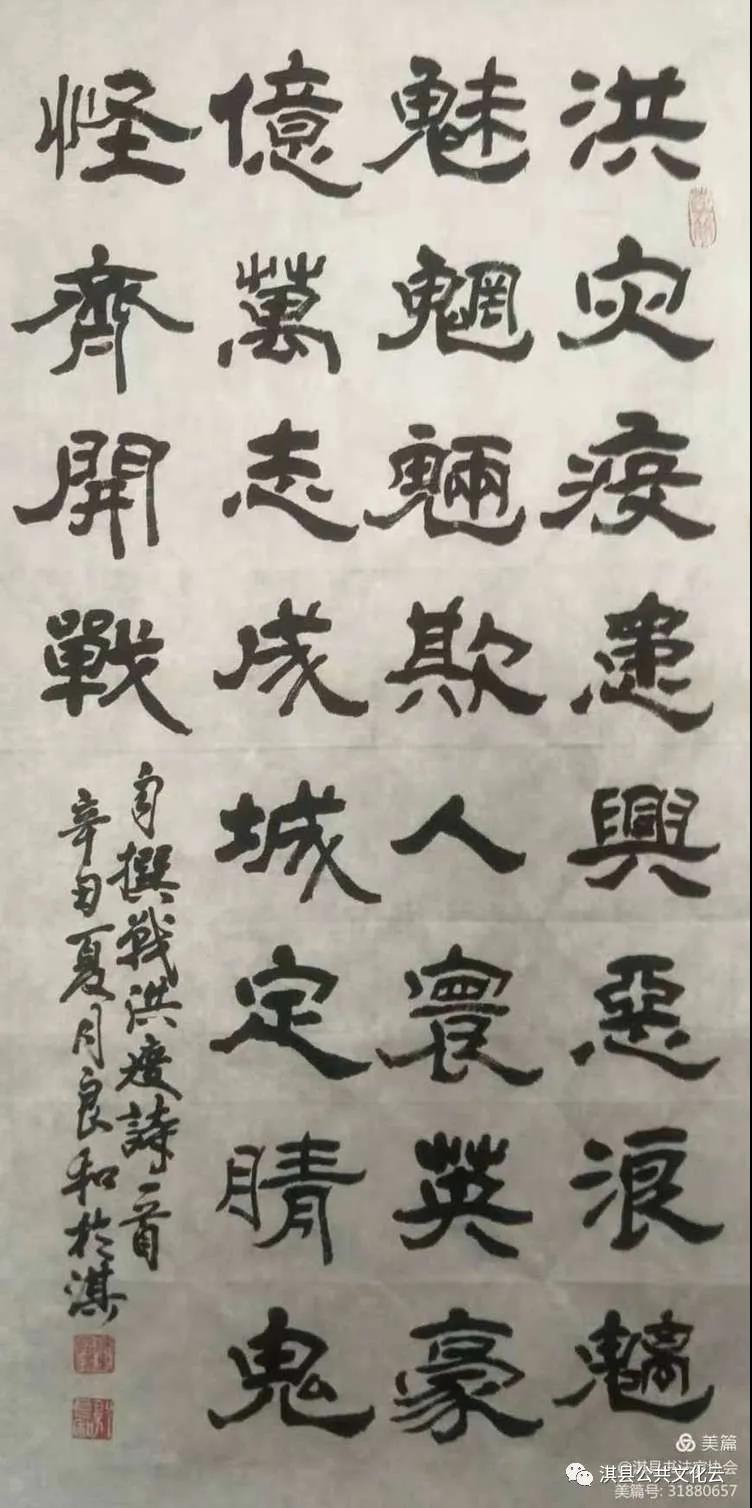 洪灾疫患興惡浪魑
魅魍魎欺人寰英豪
億萬志成城定睛鬼
怪齊開戰
自撰戰洪疫詩一首
辛丑夏月良和於淇
美篇
@淇县书法家协会
淇县公共文化云
美篇号: 31880657